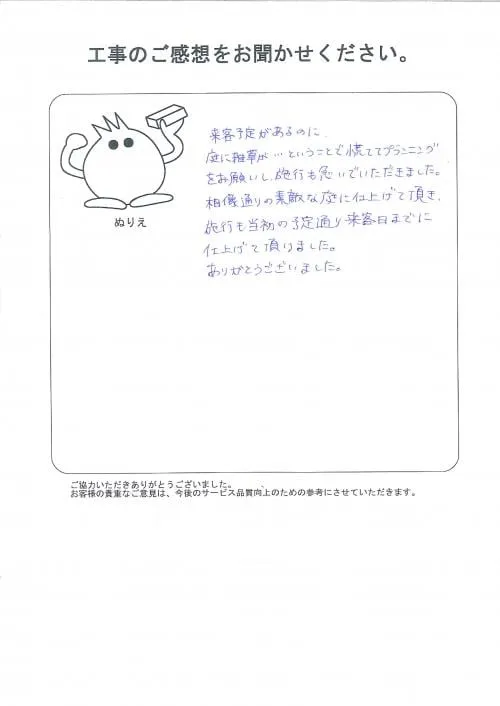 工事のご感想をお聞かせください。
ぬりえ
来客予定があるのに、
庭に雑草が…ということで慌ててプランニング
をお願いし、施行も急いでいただきました。
想像通りの素敵な庭に仕上げて頂き、
施行も当初の予定通り来客日までに
仕上げて頂けました。
ありがとうございました。
ご協力いただきありがとうございました。
お客様の貴重なご意見は、今後のサービス品質向上のための参考にさせていただきます。